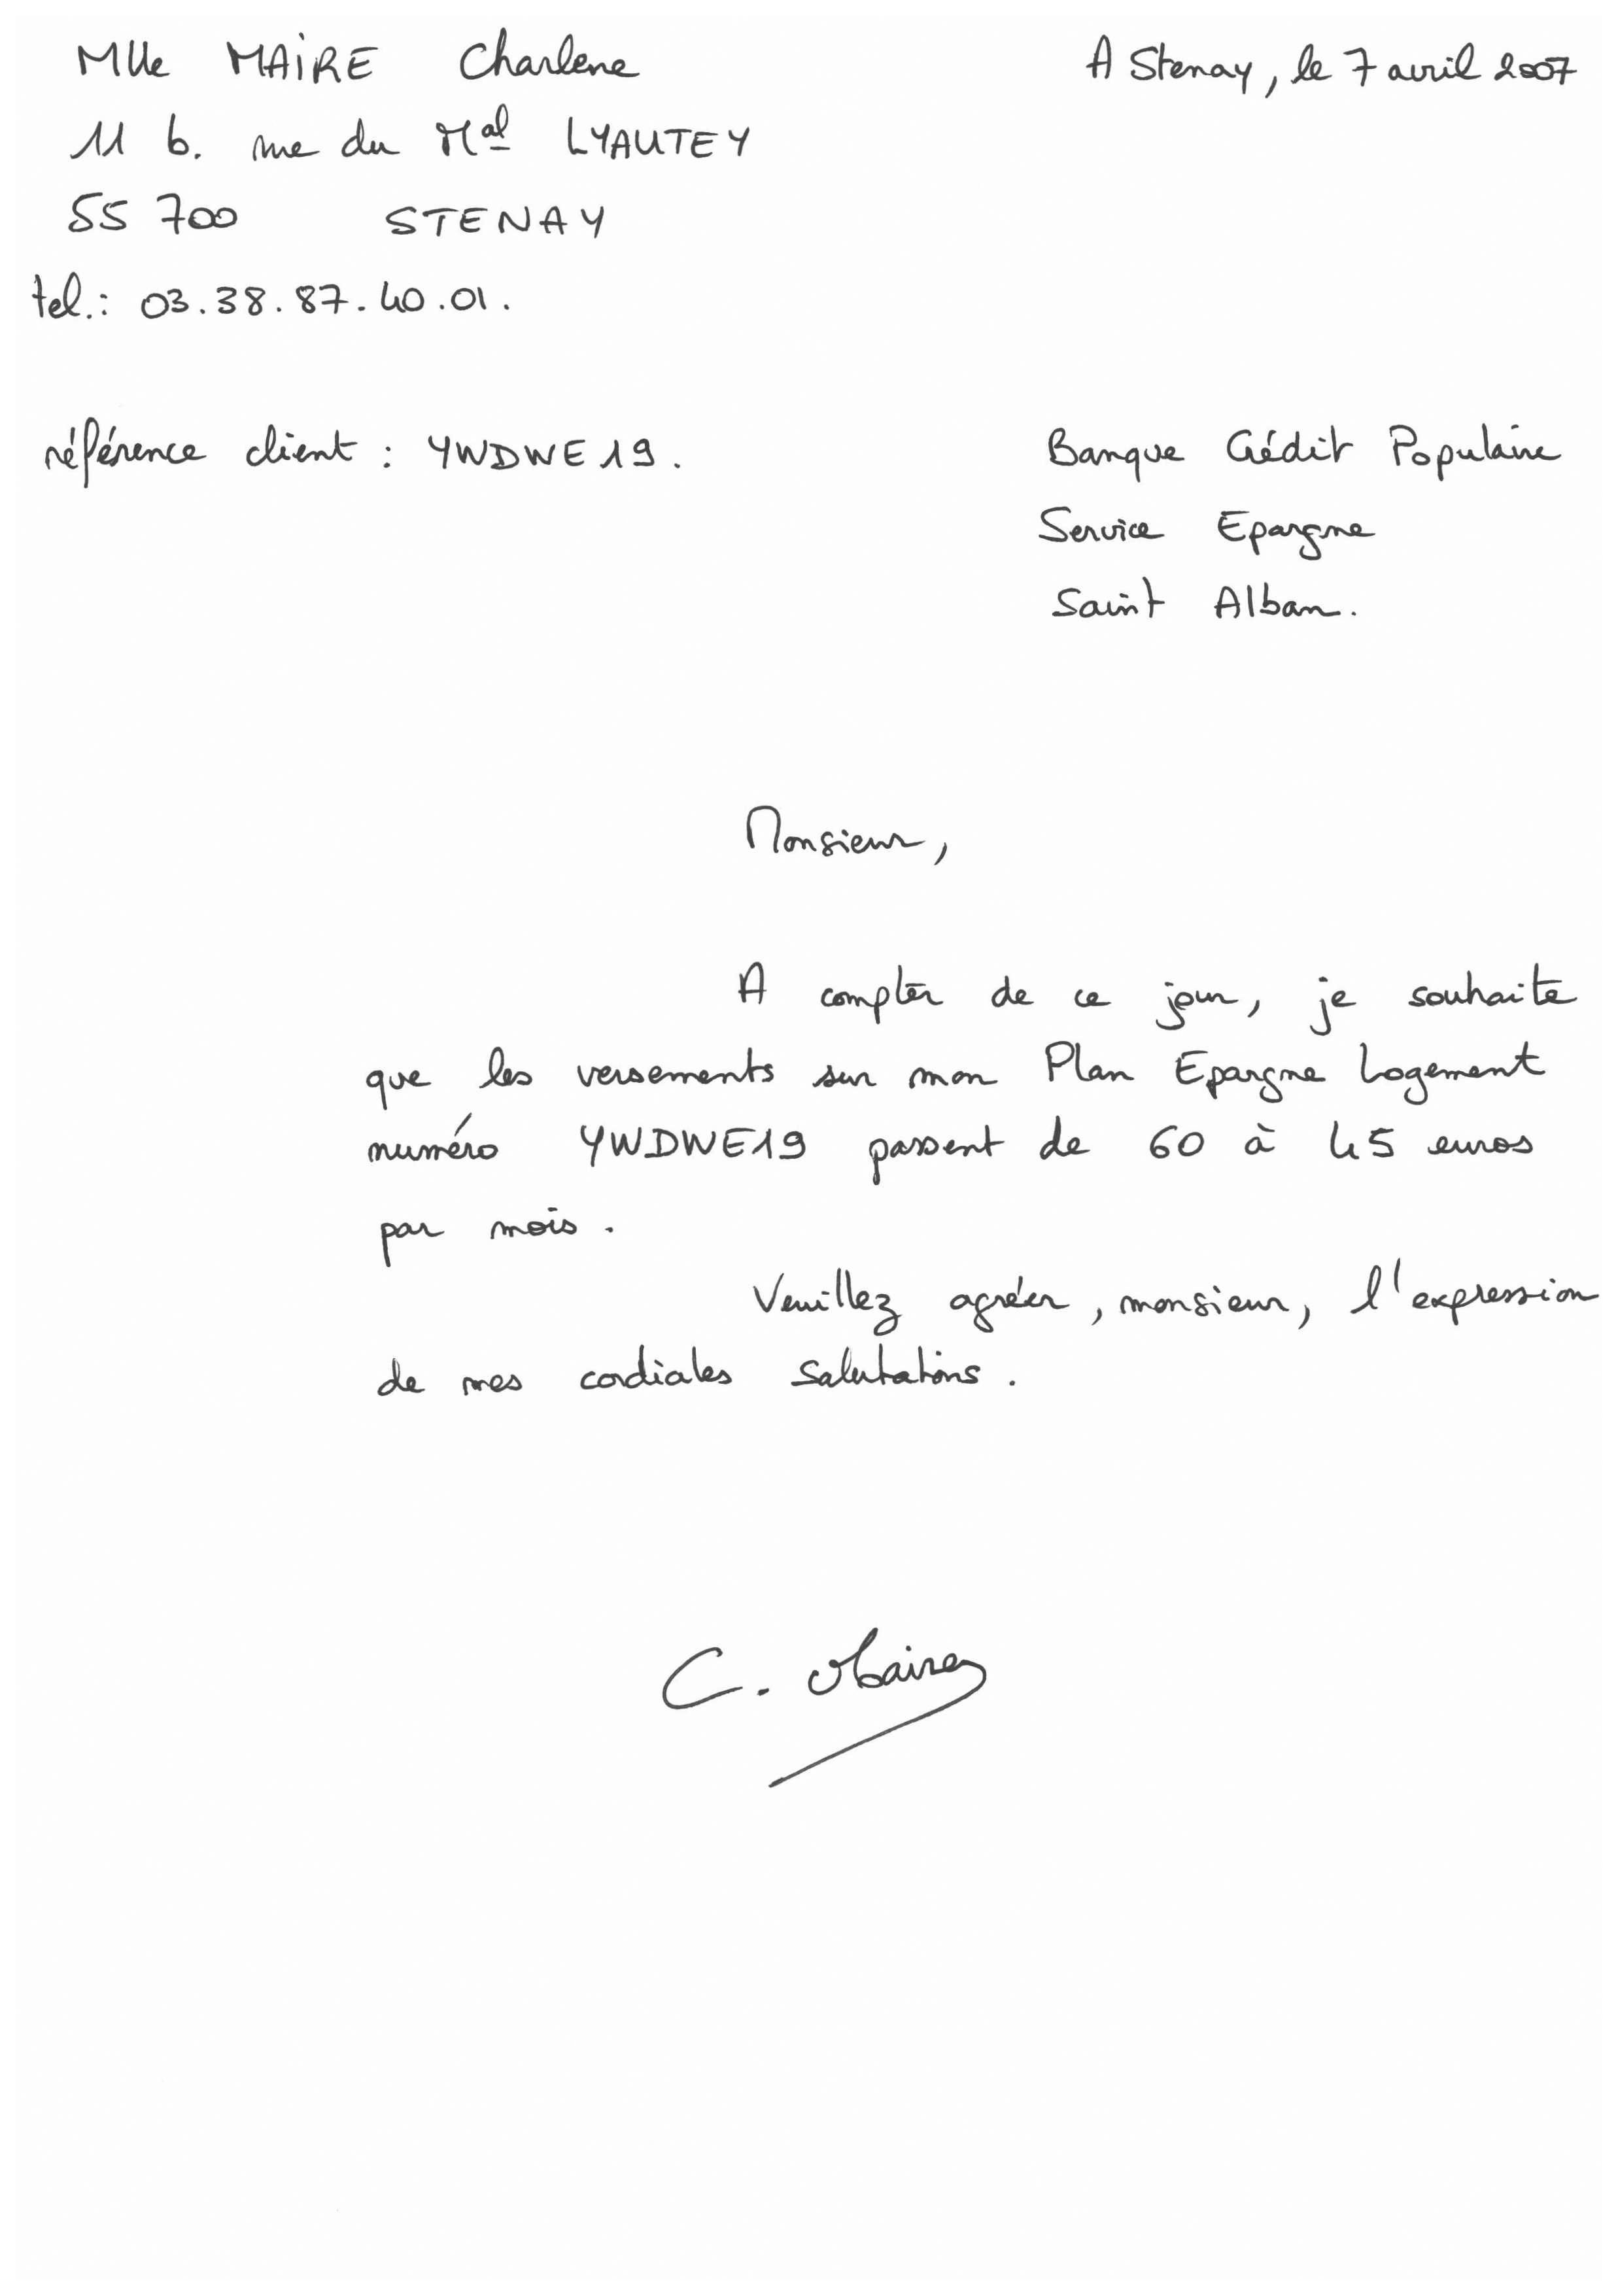 Mlle MAiRE Charlene
A Stenay, le 7 avril 2007
11 b. rue du Mal LYAUTEY
55 700 STENAY
tel.: 03.38.87.40.01.
référence client : YWDWE19.
Banque Crédit Populaire
Service Epargne
Saint Alban.
Monsieur,
A compter de ce jour, je souhaite
que les versements sur mon Plan Epargne Logement
numéro YWDWE19 passent de 60 à 45 euros
par mois.
Veuillez agréer, monsieur, l'expression
de mes cordiales salutations.
C. Maire